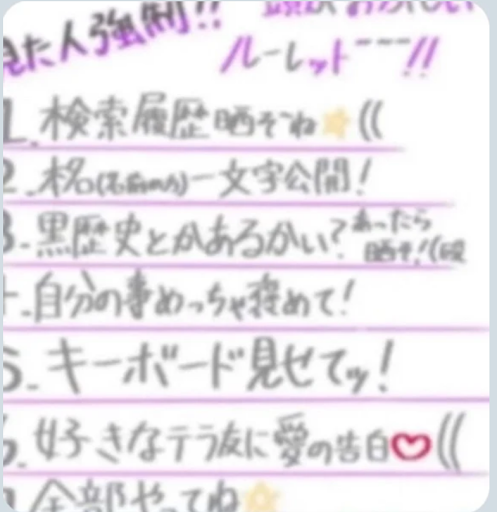 見た人強制!!
ルーレット---!!
1.検索履歴晒そね⭐((
2.本名(名前のみ)一文字公開!
3.黒歴史とかあるかい?あったら
晒そ!(殴
4.自分の事めっちゃ褒めて!
5.キーボード見せてッ!
6.好きなテラ友に愛の告白♡((
全部やってね⭐